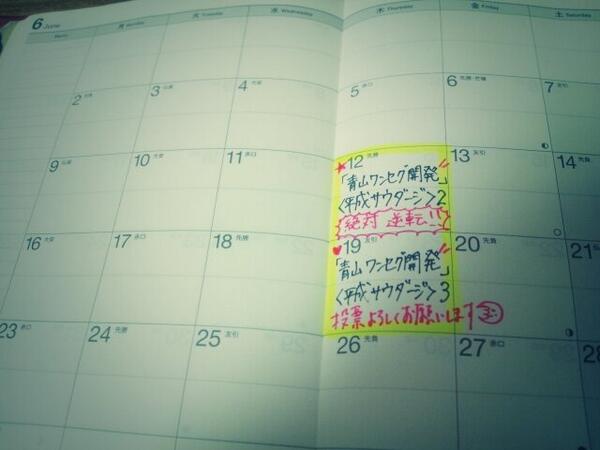 6 June
Memo
月 Monday
火 Tuesday
水 Wednesday
木 Thursday
金 Friday
土 Saturday
2
3
4
5 赤口
6 先勝・芒種
7 友引
9 仏滅
10 大安
11 赤口
★12 先勝
「青山ワンセグ開発」
<平成サウダージ>2
絶対 逆転!!
13 友引
14 先負
16 大安
17 赤口
18 先勝
♥19 友引
「青山ワンセグ開発」
<平成サウダージ>3
投票よろしくお願いします
20 先負
21
23 赤口
24 先勝
25 友引
26 先負
27
28